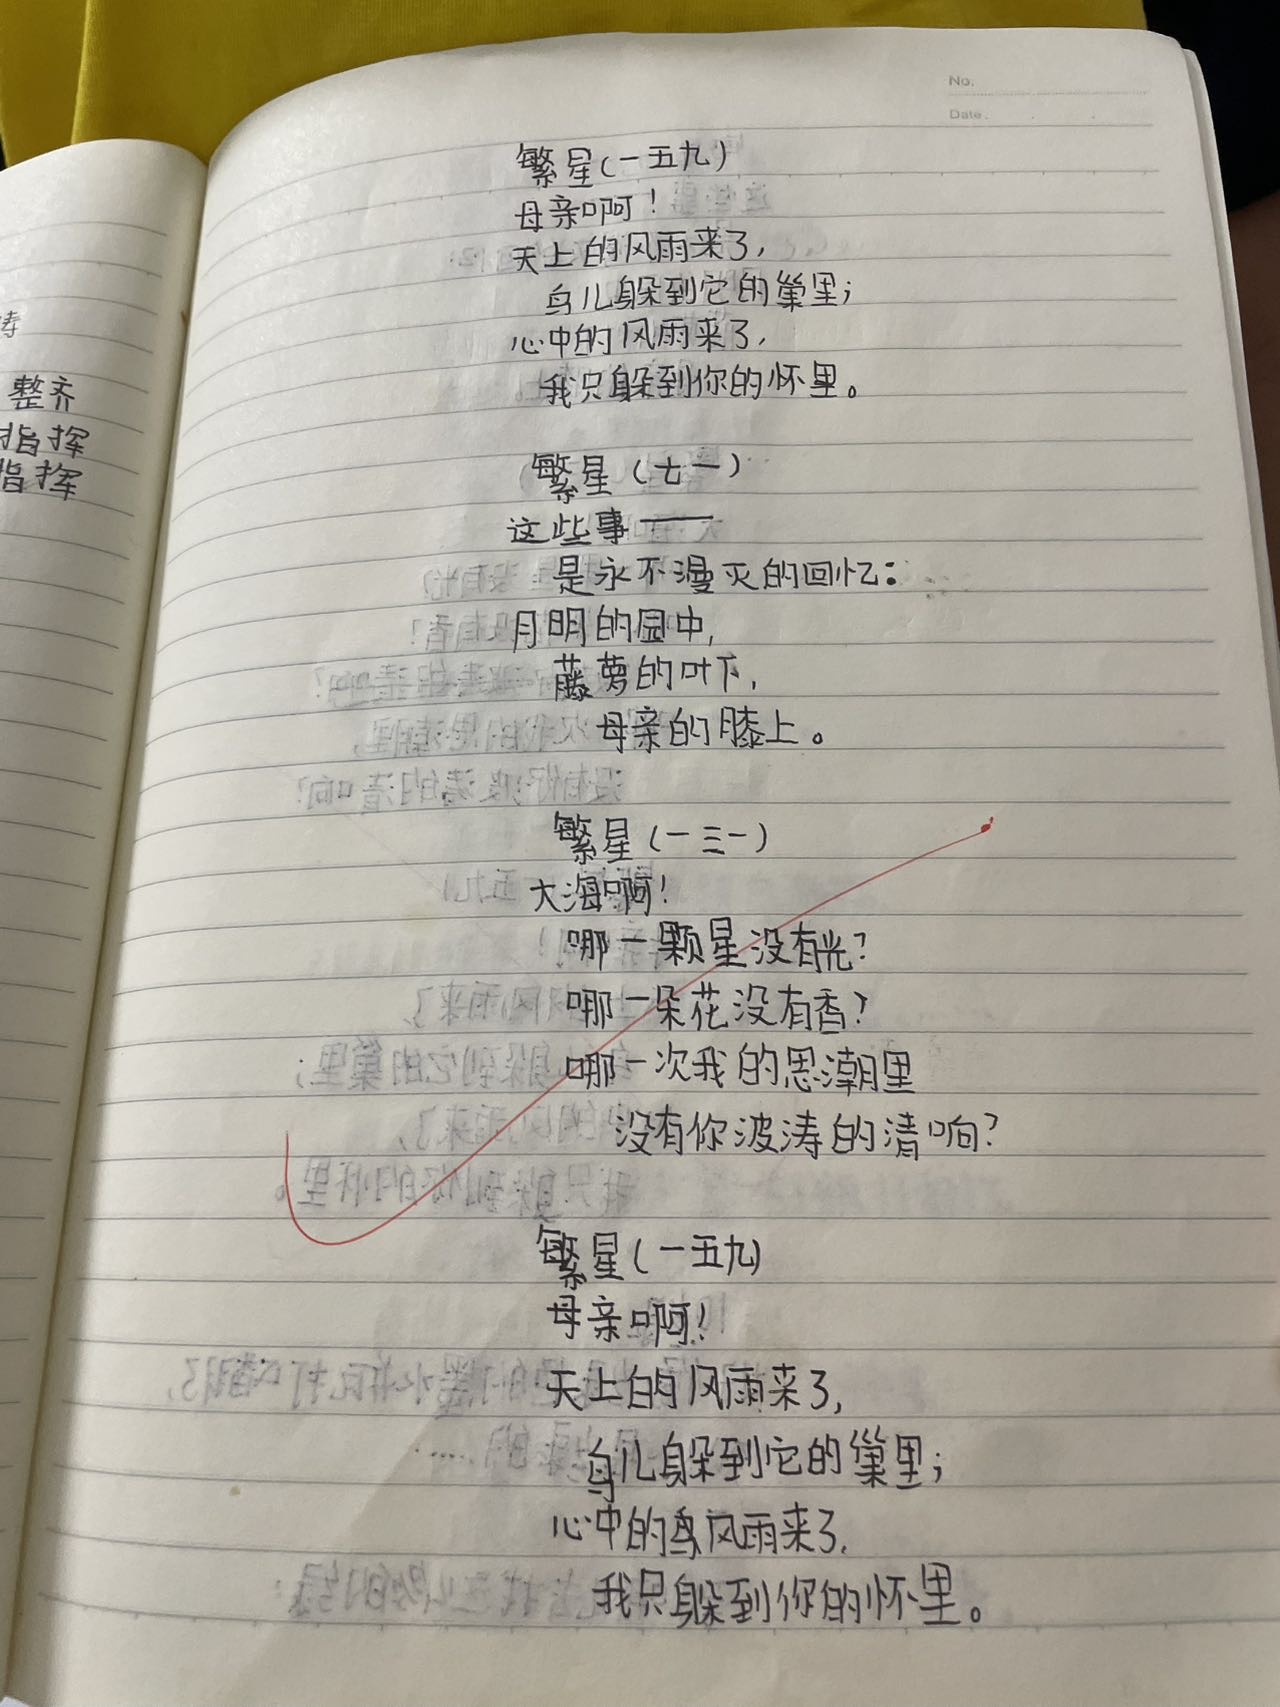 No.
Date.
繁星(一五九)
母亲啊!
天上的风雨来了,
鸟儿躲到它的巢里;
心中的风雨来了,
我只躲到你的怀里。
整齐
指挥
指挥
繁星(七一)
这些事——
是永不漫灭的回忆:
月明的园中,
藤萝的叶下,
母亲的膝上。
繁星(一三一)
大海啊!
哪一颗星没有光?
哪一朵花没有香?
哪一次我的思潮里
没有你波涛的清响?
繁星(一五九)
母亲啊!
天上的风雨来了,
鸟儿躲到它的巢里;
心中的鸟风雨来了,
我只躲到你的怀里。